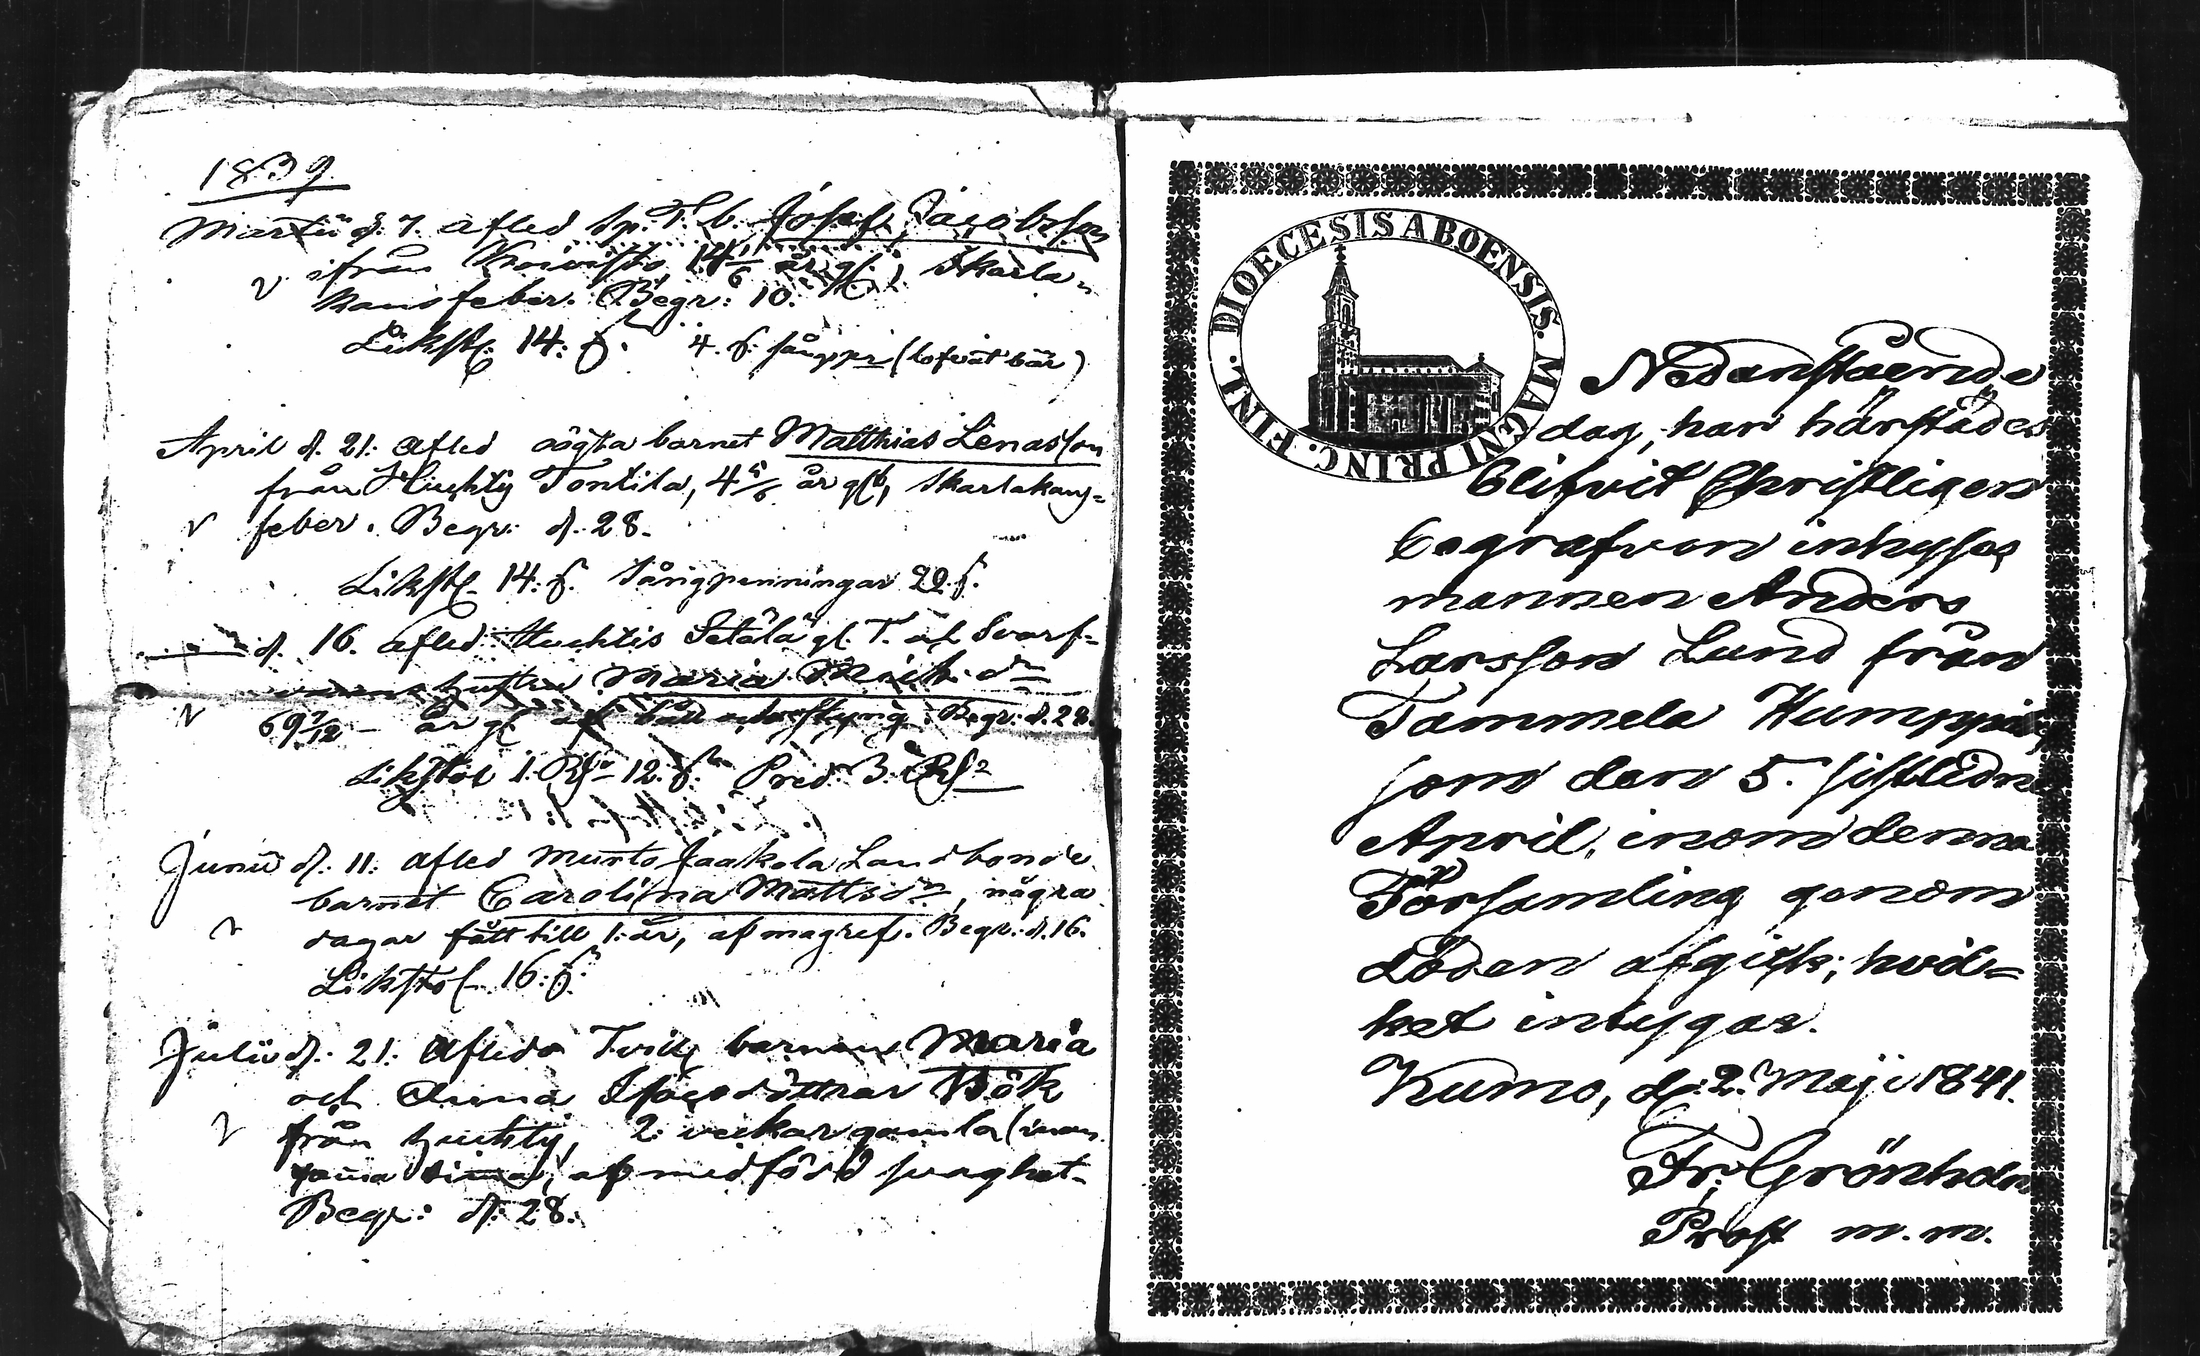 1839
Martii d. 7. afled Sp. T. b. Josef Jacobsson
ifrån Koivisto, 14 1/6 år gl. Skarla-
kansfeber. Begr: 10.
Likst. 14. 4. (lofvat bär)
April d. 21: afled oägta barnet Matthias Lenasson
från Huchtis Tontila, 4 5/6 år gl, skarlakans-
feber. Begr: d. 28.
Likst. 14. Sångpenningar 20.
d. 16. afled Huchtis Setälä gl. T. och Svarf-
hustru Maria Mich. dr
69 7/12 år gl af håll och styng. Begr: d. 28.
Likstol 1. 12. Pred. 3.
Junii d. 11: afled Munto Jaakola Landbonde
barnet Carolina Mattsdr, några
dagar fått till 1: år, af magref. Begr: d. 16.
Likstol 16.
Julii d. 21: afledo Tvill barnen Maria
och Anna Isacsdöttrar Bök
från Huchtis, 2 veckor gamla (inom
sama tima), af medförd svaghet.
Begr: d: 28.
FINL. DIOECESIS ABOENSIS. MAGNI PRINC.
Nedanstående
dag, har härstädes
blifvit Christligen
begrafven inhyses
mannen Anders
Larsson Lund från
Tammela Humppila
som den 5. sistledne
April, inom denna
Församling genom
döden afgick; hvil-
ket intygar.
Kumo, d. 2. Maji 1841.
Fr: Grönholm
Prost m. m.